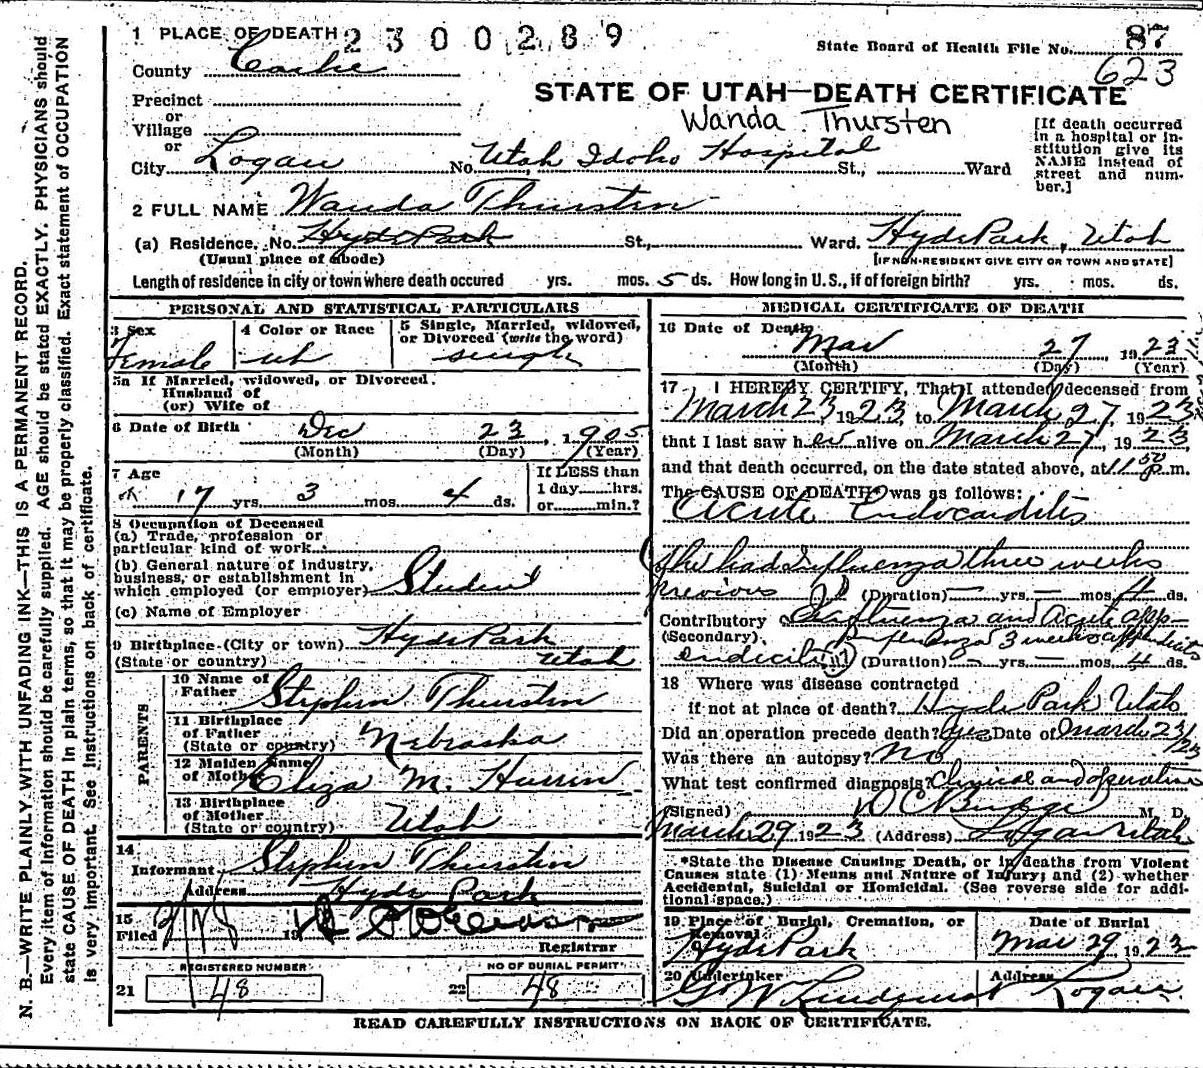 1 PLACE OF DEATH 2300289
State Board of Health File No. 87
County Cache
623
Precinct
STATE OF UTAH—DEATH CERTIFICATE
or
Village
Wanda Thursten
or
City Logan No. Utah Idaho Hospital St., Ward
[If death occurred in a hospital or institution give its NAME instead of street and number.]
2 FULL NAME Wanda Thurstin
(a) Residence. No. Hyde Park St., Ward. Hyde Park, Utah
(Usual place of abode) [IF NON-RESIDENT GIVE CITY OR TOWN AND STATE]
Length of residence in city or town where death occured yrs. mos. 5 ds. How long in U. S., if of foreign birth? yrs. mos. ds.
PERSONAL AND STATISTICAL PARTICULARS
3 Sex 4 Color or Race 5 Single, Married, widowed,
or Divorced (write the word)
Female wh single
5a If Married, widowed, or Divorced.
Husband of
(or) Wife of
6 Date of Birth Dec 23, 1905
(Month) (Day) (Year)
7 Age If LESS than
17 yrs. 3 mos. 4 ds. 1 day hrs.
or min.?
8 Occupation of Deceased
(a) Trade, profession or
particular kind of work
(b) General nature of industry,
business, or establishment in
which employed (or employer) Student
(c) Name of Employer
9 Birthplace (City or town) Hyde Park
(State or country) Utah
PARENTS
10 Name of
Father Stephen Thurstin
11 Birthplace
of Father
(State or country) Nebraska
12 Maiden Name
of Mother Eliza M.
13 Birthplace
of Mother
(State or country) Utah
14
Informant Stephen Thurstin
Address Hyde Park
15
Filed 19
Registrar
REGISTERED NUMBER NO OF BURIAL PERMIT
21 48 22 48
MEDICAL CERTIFICATE OF DEATH
16 Date of Death Mar 27, 1923
(Month) (Day) (Year)
17 I HEREBY CERTIFY, That I attended deceased from
March 23, 1923, to March 27, 1923
that I last saw her alive on March 27, 1923,
and that death occurred, on the date stated above, at 11 50 p.m.
The CAUSE OF DEATH* was as follows:
Acute Endocarditis
She had Influenza three weeks
previous (Duration) — yrs. — mos. 4 ds.
Contributory Influenza and Acute app-
(Secondary) Influenza 3 weeks appendicitis
endicitis 117 (Duration) — yrs. — mos. 4 ds.
18 Where was disease contracted
if not at place of death? Hyde Park Utah
Did an operation precede death? yes Date of March 23/23
Was there an autopsy? No
What test confirmed diagnosis? Clinical and operation
(Signed) D C Budge M. D.
March 29 1923 (Address) Logan Utah
*State the Disease Causing Death, or in deaths from Violent
Causes state (1) Means and Nature of Injury; and (2) whether
Accidental, Suicidal or Homicidal. (See reverse side for addi-
tional space.)
19 Place of Burial, Cremation, or Date of Burial
Removal
Hyde Park Mar 29 1923
20 Undertaker Address
G W Lindquist Logan.
READ CAREFULLY INSTRUCTIONS ON BACK OF CERTIFICATE.
N. B.—WRITE PLAINLY WITH UNFADING INK—THIS IS A PERMANENT RECORD.
Every item of information should be carefully supplied. AGE should be stated EXACTLY. PHYSICIANS should
state CAUSE OF DEATH in plain terms, so that it may be properly classified. Exact statement of OCCUPATION
is very important. See instructions on back of certificate.